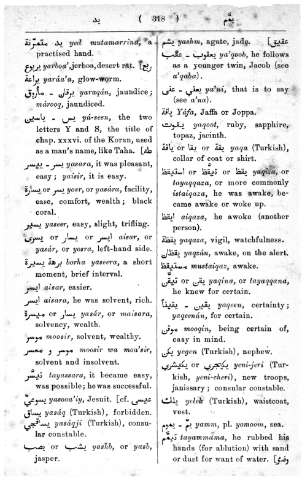 يد ( 318 ) يشم
يد متمرّنة yed mutamarrina, a
practised hand.
يربوع yarboa', jerboa, desert rat.
يراعة yarâa'a, glow-worm.
يرقان yaraqân, jaundice;
mâroog, jaundiced.
يس - ياسين yâ-seen, the two
letters Y and S, the title of
chap. xxxvi. of the Koran, used
as a man's name, like Taha.
يسر - ييسر yasara, it was pleasant,
easy; yaisir, it is easy.
يسر or يسارة yosr, or yasâra, facility,
ease, comfort, wealth; black
coral.
يسير yaseer, easy, slight, trifling.
يسار or يسرى aisar, or
yasâr, or yosra, left-hand side.
برهة يسيرة borha yaseera, a short
moment, brief interval.
ايسر aisar, easier.
ايسر aisara, he was solvent, rich.
يسار or ميسرة yasâr, or maisara,
solvency, wealth.
موسر moosir, solvent, wealthy.
موسر و معسر moosir wa moa'sir,
solvent and insolvent.
تيسّر tayassara, it became easy,
was possible; he was successful.
يسوعي yasooa'iy, Jesuit. [cf. عيسى
يساق yasâq (Turkish), forbidden.
يساقجي yasâqji (Turkish), consu-
lar constable.
يشب or يصب yashb, or yasb,
jasper.
يشم yashm, agate, jade. [عقيق
يعقوب ya'qoob, he follows
as a younger twin, Jacob (see
a'qaba).
يعني ya'ni, that is to say
(see a'na).
يافا Yâfa, Jaffa or Joppa.
ياقوت yaqoot, ruby, sapphire,
topaz, jacinth.
يقا or ياقة yaqa (Turkish),
collar of coat or shirt.
yaqiza, or
tayaqqaza, or more commonly
istaiqaza, he was awake, be-
came awake or woke up.
ايقظ aiqaza, he awoke (another
person).
يقظة yaqaza, vigil, watchfulness.
يقظان yaqzân, awake, on the alert.
مستيقظ mustaiqaz, awake.
يقن or تيقّن yaqina, or tayaqqana,
he knew for certain.
يقين - يقينًا yaqeen, certainty;
yaqeenân, for certain.
موقن mooqin, being certain of,
easy in mind.
يكن yegen (Turkish), nephew.
يكيچري or ينكيشري yeni-jeri (Tur-
kish, yeni-theri), new troops,
janissary; consular constable.
يلك yelik (Turkish), waistcoat,
vest.
يم - يموم yamm, pl. yomoom, sea.
تيمّم tayammâma, he rubbed his
hands (for ablution) with sand
or dust for want of water. [وضو